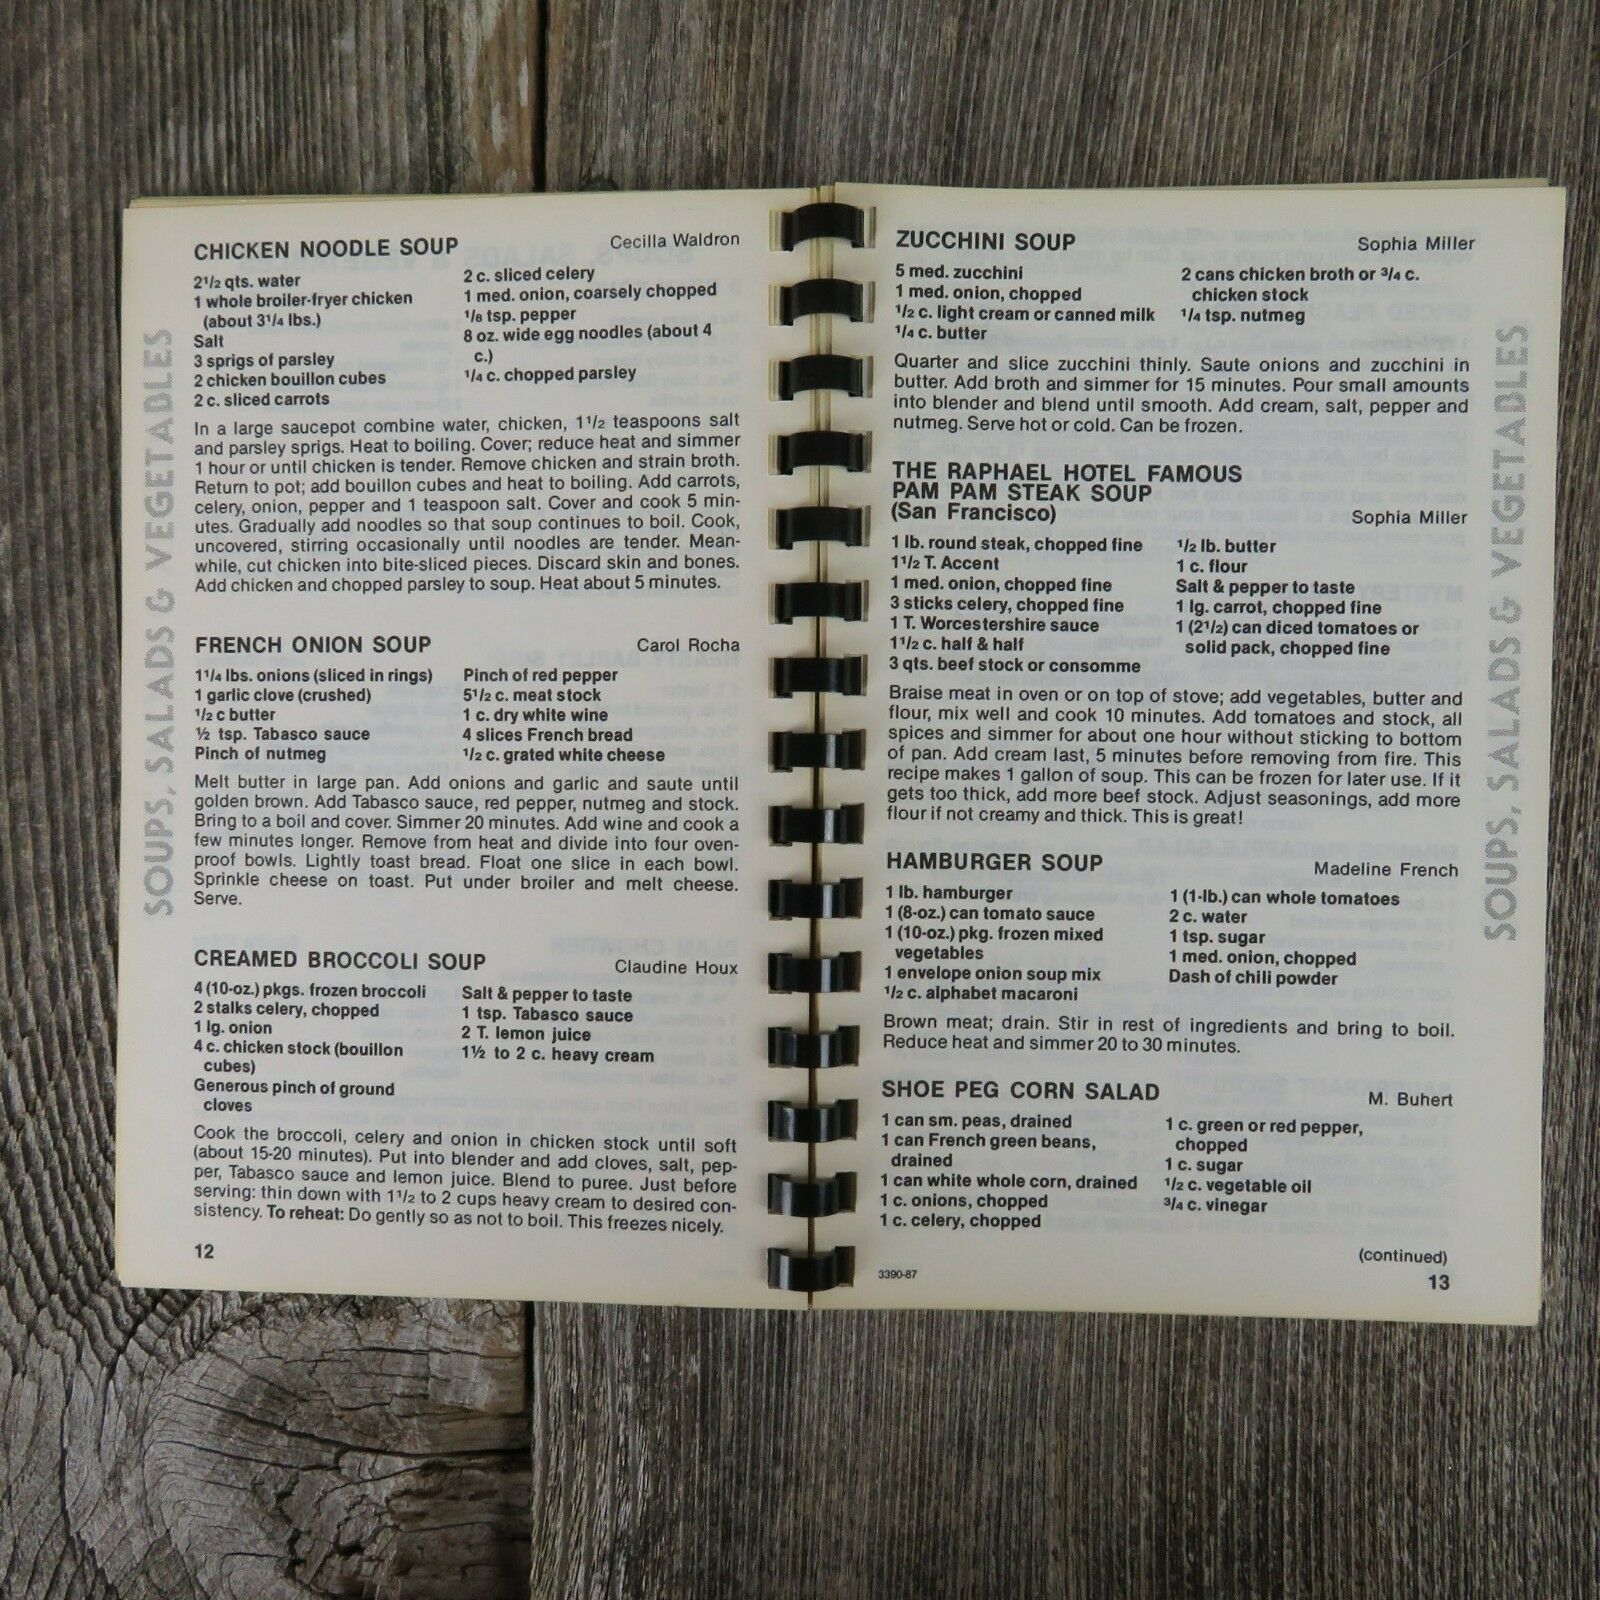 SOUPS, SALADS & VEGETABLES
CHICKEN NOODLE SOUP
Cecilla Waldron
2 1/2 qts. water
1 whole broiler-fryer chicken
(about 3 1/4 lbs.)
Salt
3 sprigs of parsley
2 chicken bouillon cubes
2 c. sliced carrots
2 c. sliced celery
1 med. onion, coarsely chopped
1/8 tsp. pepper
8 oz. wide egg noodles (about 4
c.)
1/4 c. chopped parsley
In a large saucepot combine water, chicken, 1 1/2 teaspoons salt
and parsley sprigs. Heat to boiling. Cover; reduce heat and simmer
1 hour or until chicken is tender. Remove chicken and strain broth.
Return to pot; add bouillon cubes and heat to boiling. Add carrots,
celery, onion, pepper and 1 teaspoon salt. Cover and cook 5 min-
utes. Gradually add noodles so that soup continues to boil. Cook,
uncovered, stirring occasionally until noodles are tender. Mean-
while, cut chicken into bite-sliced pieces. Discard skin and bones.
Add chicken and chopped parsley to soup. Heat about 5 minutes.
FRENCH ONION SOUP
Carol Rocha
1 1/4 lbs. onions (sliced in rings)
1 garlic clove (crushed)
1/2 c butter
½ tsp. Tabasco sauce
Pinch of nutmeg
Pinch of red pepper
5 1/2 c. meat stock
1 c. dry white wine
4 slices French bread
1/2 c. grated white cheese
Melt butter in large pan. Add onions and garlic and saute until
golden brown. Add Tabasco sauce, red pepper, nutmeg and stock.
Bring to a boil and cover. Simmer 20 minutes. Add wine and cook a
few minutes longer. Remove from heat and divide into four oven-
proof bowls. Lightly toast bread. Float one slice in each bowl.
Sprinkle cheese on toast. Put under broiler and melt cheese.
Serve.
CREAMED BROCCOLI SOUP
Claudine Houx
4 (10-oz.) pkgs. frozen broccoli
2 stalks celery, chopped
1 lg. onion
4 c. chicken stock (bouillon
cubes)
Generous pinch of ground
cloves
Salt & pepper to taste
1 tsp. Tabasco sauce
2 T. lemon juice
1½ to 2 c. heavy cream
Cook the broccoli, celery and onion in chicken stock until soft
(about 15-20 minutes). Put into blender and add cloves, salt, pep-
per, Tabasco sauce and lemon juice. Blend to puree. Just before
serving: thin down with 1 1/2 to 2 cups heavy cream to desired con-
sistency. To reheat: Do gently so as not to boil. This freezes nicely.
12
ZUCCHINI SOUP
Sophia Miller
5 med. zucchini
1 med. onion, chopped
1/2 c. light cream or canned milk
1/4 c. butter
2 cans chicken broth or 3/4 c.
chicken stock
1/4 tsp. nutmeg
Quarter and slice zucchini thinly. Saute onions and zucchini in
butter. Add broth and simmer for 15 minutes. Pour small amounts
into blender and blend until smooth. Add cream, salt, pepper and
nutmeg. Serve hot or cold. Can be frozen.
THE RAPHAEL HOTEL FAMOUS
PAM PAM STEAK SOUP
(San Francisco)
Sophia Miller
1 lb. round steak, chopped fine
1 1/2 T. Accent
1 med. onion, chopped fine
3 sticks celery, chopped fine
1 T. Worcestershire sauce
1 1/2 c. half & half
3 qts. beef stock or consomme
1/2 lb. butter
1 c. flour
Salt & pepper to taste
1 lg. carrot, chopped fine
1 (2 1/2) can diced tomatoes or
solid pack, chopped fine
Braise meat in oven or on top of stove; add vegetables, butter and
flour, mix well and cook 10 minutes. Add tomatoes and stock, all
spices and simmer for about one hour without sticking to bottom
of pan. Add cream last, 5 minutes before removing from fire. This
recipe makes 1 gallon of soup. This can be frozen for later use. If it
gets too thick, add more beef stock. Adjust seasonings, add more
flour if not creamy and thick. This is great!
HAMBURGER SOUP
Madeline French
1 lb. hamburger
1 (8-oz.) can tomato sauce
1 (10-oz.) pkg. frozen mixed
vegetables
1 envelope onion soup mix
1/2 c. alphabet macaroni
1 (1-lb.) can whole tomatoes
2 c. water
1 tsp. sugar
1 med. onion, chopped
Dash of chili powder
Brown meat; drain. Stir in rest of ingredients and bring to boil.
Reduce heat and simmer 20 to 30 minutes.
SHOE PEG CORN SALAD
M. Buhert
1 can sm. peas, drained
1 can French green beans,
drained
1 can white whole corn, drained
1 c. onions, chopped
1 c. celery, chopped
1 c. green or red pepper,
chopped
1 c. sugar
1/2 c. vegetable oil
3/4 c. vinegar
(continued)
3390-87
13
SOUPS, SALADS & VEGETABLES